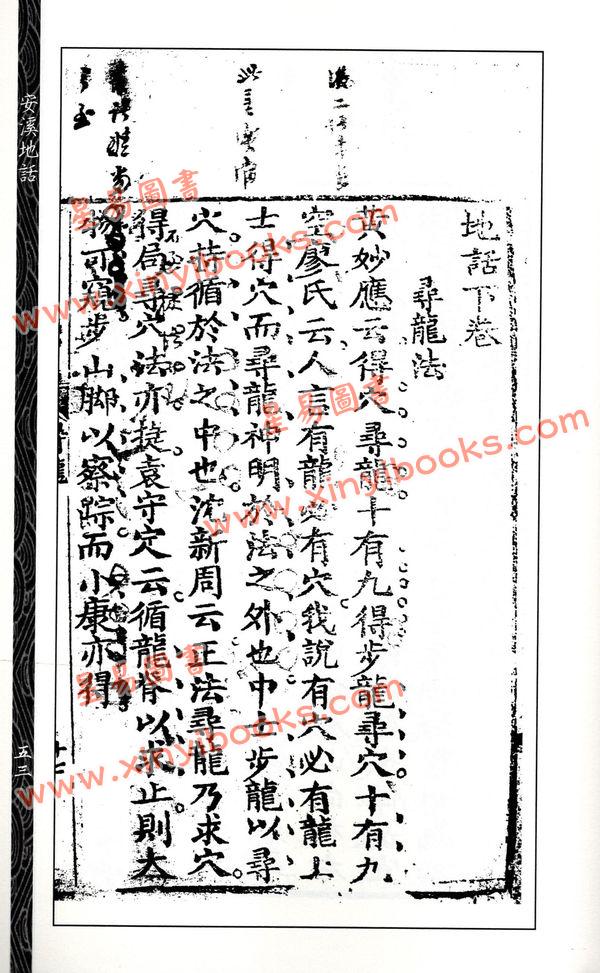 地話下卷
尋龍法
黃妙應云得穴尋龍十有九得步龍尋穴十有九
空廖氏云人言有龍必有穴我說有穴必有龍上
士得穴而尋龍神明於法之外也中士步龍以尋
穴循於法之中也沈新周云正法尋龍乃求穴
得局尋穴法亦捷袁守定云循龍脊以求止則大
物可窺步山脚以察踪而小康亦得
安溪地話
五三
星易圖書
www.xinyibooks.com
星易圖書
www.xinyibooks.com
星易圖書
www.xinyibooks.com